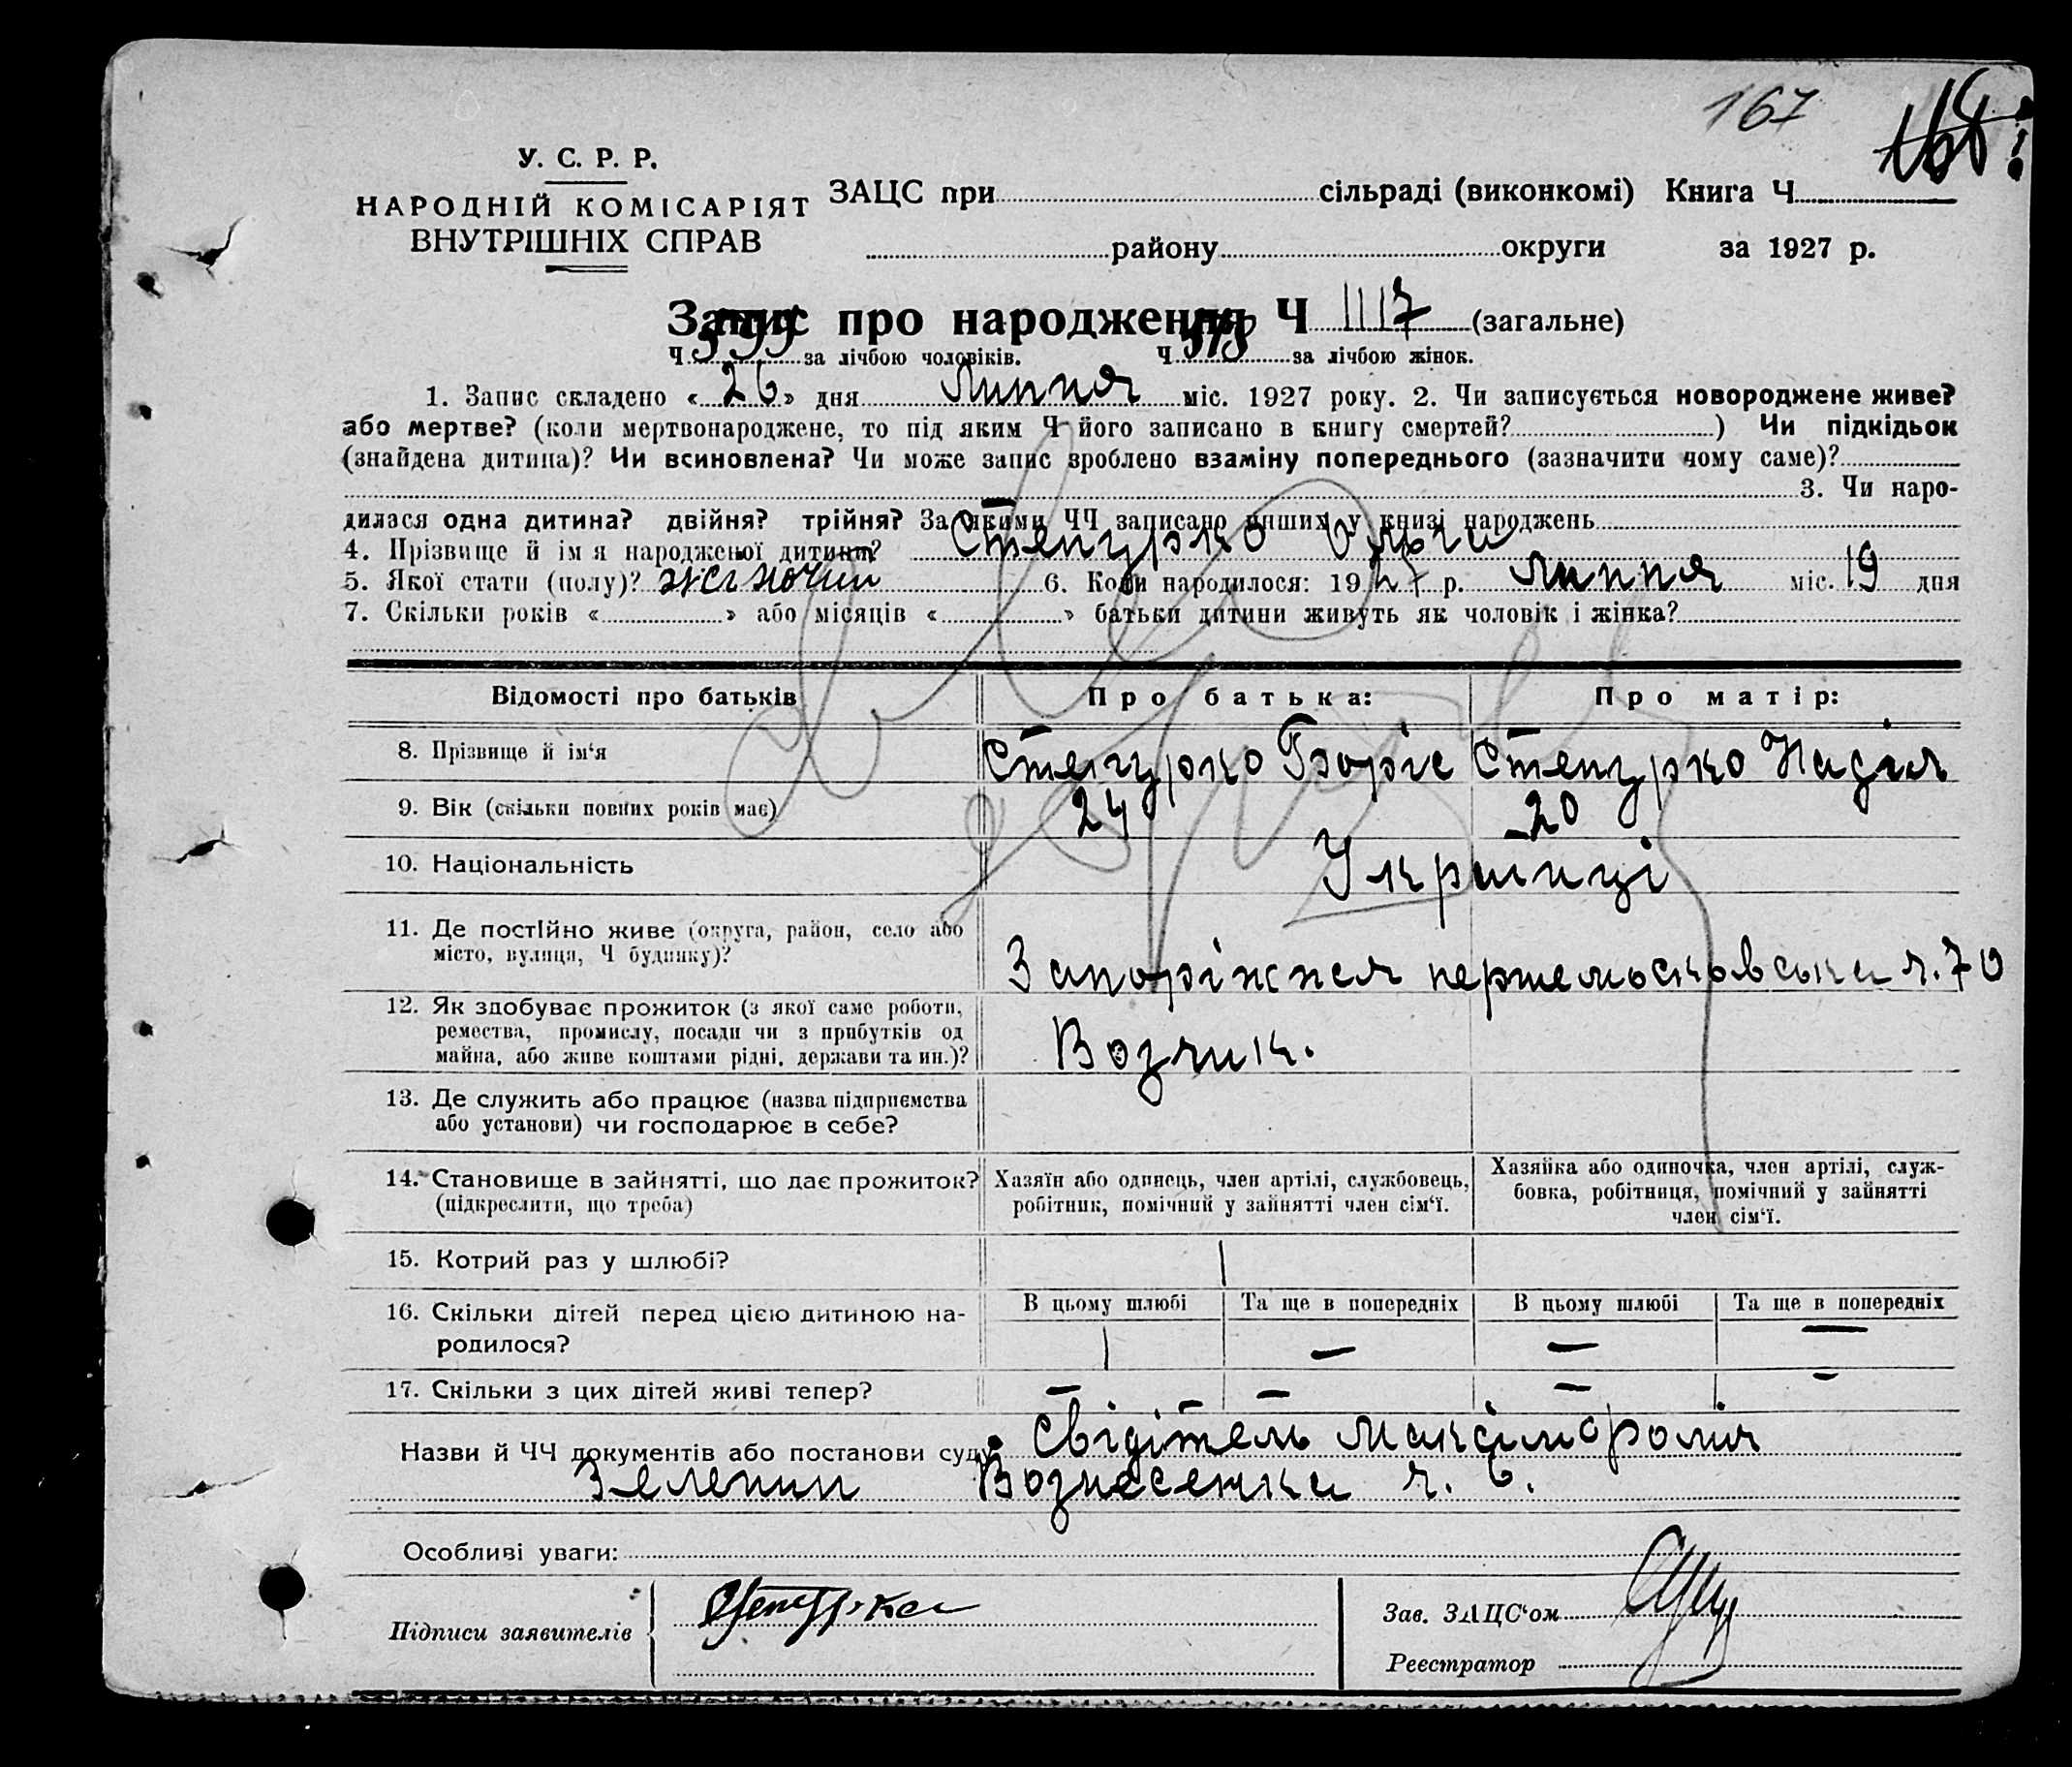 167
У. С. Р. Р.
НАРОДНІЙ КОМІСАРІЯТ
ВНУТРІШНІХ СПРАВ
ЗАЦС при сільраді (виконкомі) Книга Ч
району округи за 1927 р.
Запис про народження Ч 1117 (загальне)
Ч за лічбою чоловіків. Ч 518 за лічбою жінок.
1. Запис складено « 26 » дня Липня міс. 1927 року. 2. Чи записується новороджене живе?
або мертве? (коли мертвонароджене, то під яким Ч його записано в книгу смертей? ) Чи підкідьок
(знайдена дитина)? Чи всиновлена? Чи може запис зроблено взаміну попереднього (зазначити чому саме)?
3. Чи наро-
дилася одна дитина? двійня? трійня? За якими ЧЧ записано инших у книзі народжень
4. Прізвище й ім'я народженої дитини? Степурко Ольга
5. Якої стати (полу)? жіночий 6. Коли народилося: 1927 р. липня міс. 19 дня
7. Скільки років « » або місяців « » батьки дитини живуть як чоловік і жінка?
Відомості про батьків Про батька: Про матір:
8. Прізвище й ім'я Степурко Борiс Степурко Надiя
9. Вік (скільки повних років має) 24 20
10. Національність Українці
11. Де постійно живе (округа, район, село або
місто, вулиця, Ч будинку)? Запоріжжя ч. 70
12. Як здобуває прожиток (з якої саме роботи,
ремества, промислу, посади чи з прибутків од
майна, або живе коштами рідні, держави та ин.)? Возчик.
13. Де служить або працює (назва підприємства
або установи) чи господарює в себе?
14. Становище в зайнятті, що дає прожиток?
(підкреслити, що треба)
Хазяїн або одинець, член артілі, службовець,
робітник, помічний у зайнятті член сім'ї.
Хазяйка або одиночка, член артілі, служ-
бовка, робітниця, помічний у зайнятті
член сім'ї.
15. Котрий раз у шлюбі?
16. Скільки дітей перед цією дитиною на-
родилося?
В цьому шлюбі Та ще в попередніх В цьому шлюбі Та ще в попередніх
— — —
17. Скільки з цих дітей живі тепер? — — — —
Назви й ЧЧ документів або постанови суду: Свідітель
Вознесенка ч. 6.
Особливі уваги:
Підписи заявителів
Зав. ЗАЦС'ом
Реєстратор